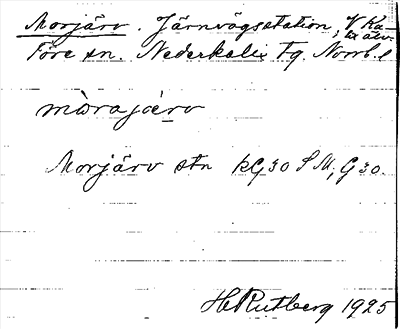 Morjärv. Järnvägsstation, V Ka-
lix älv.
Töre sn. Nederkalix tg. Norrb. l
mòrajærv
Morjärv stn kG30 SM; G30.
H Rutberg 1925